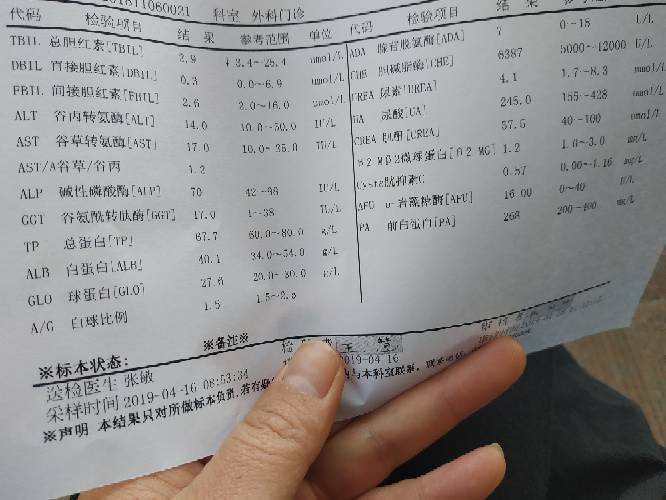 科室 外科门诊
代码 检验项目 结 果 参考范围 单位
TBIL 总胆红素[TBIL] 2.9 ↓ 3.4~25.4 umol/L
DBIL 直接胆红素[DBIL] 0.3 0.0~6.9 umol/L
间接胆红素 2.6 2.0~16.0 umol/L
ALT 谷丙转氨酶[ALT] 14.0 10.0~50.0 IU/L
AST 谷草转氨酶[AST] 17.0 10.0~35.0
AST/A谷草/谷丙 1.2
ALP 碱性磷酸酶[ALP] 70 IU/L
GGT 谷氨酰转肽酶[GGT] 17.0
TP 总蛋白[TP] 67.7 60.0~80.0 g/L
ALB 白蛋白[ALB] 40.1 34.0~54.0 g/L
GLO 球蛋白[GLO] 27.6 20.0~30.0 g/L
A/G 白球比例 1.5
代码 检验项目
ADA 腺苷脱氨酶[ADA] 7 0~15 U/L
CHE 胆碱酯酶[CHE] 6387 5000~12000 U/L
尿素 4.1 1.7~8.3 mmol/L
尿酸[UA] 245.0 155~428 umol/L
CREA 肌酐[CREA] 57.5 40~100 umol/L
β2微球蛋白 1.2 1.0~3.0 mg/L
0.57 0.00~1.16 mg/L
AFU α-岩藻糖酶[AFU] 16.00 0~40 U/L
PA 前白蛋白[PA] 268 200~400 mg/L
※标本状态: ※备注※
送检医生 张敏
采样时间 2019-04-16 08:53:34
2019-04-16
※声明 本结果只对所做标本负责,若有疑 与本科室联系,